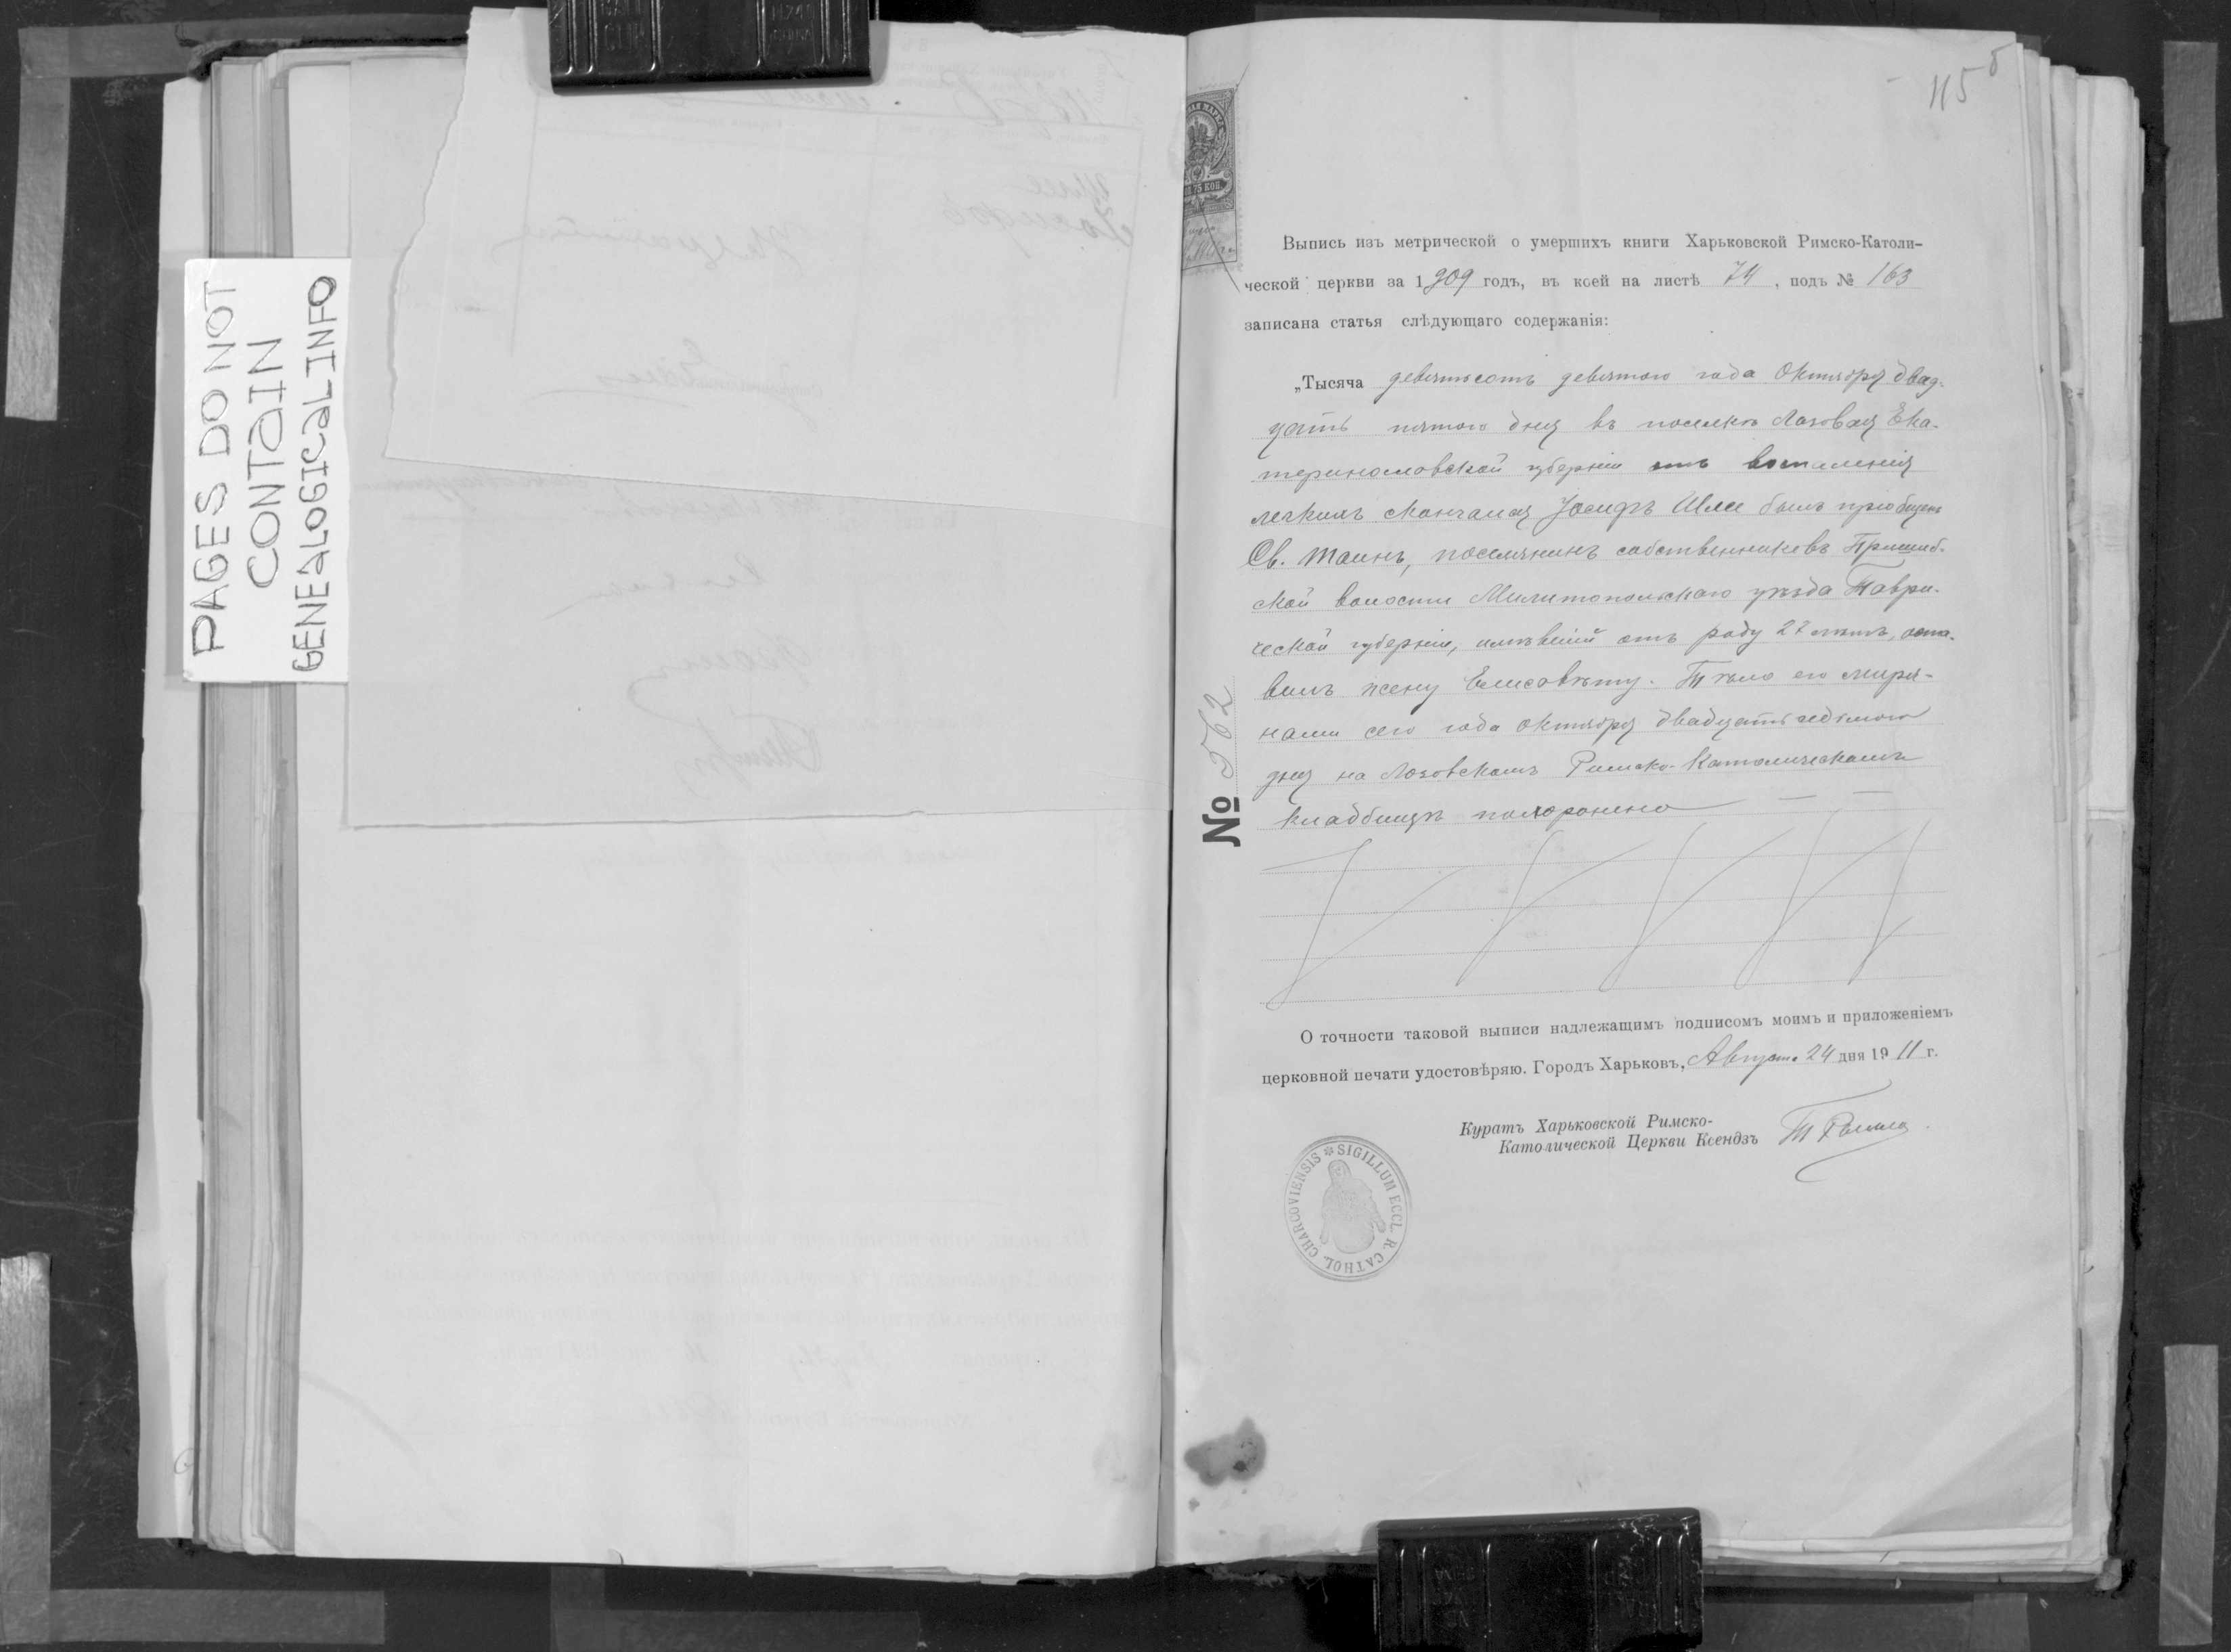 PAGES DO NOT
CONTAIN
GENEALOGICAL INFO
115 б
75 КОП.
Выпись изъ метрической о умершихъ книги Харьковской Римско-Католи-
ческой церкви за 1909 годъ, въ коей на листѣ 74, подъ № 163
записана статья слѣдующаго содержанія:
„Тысяча девятьсотъ девятого года Октября двад-
цать пятого дня въ поселкѣ Лозовая Ека-
теринославской губерніи отъ воспаленія
легкихъ скончался Іосифъ Шле былъ пріобщенъ
Св. Таинъ, поселянинъ собственниковъ Пришиб-
ской волости Мелитопольскаго уѣзда Таври-
ческой губерніи, имѣвшій отъ роду 27 лѣтъ, оста-
вилъ жену Елисавету. Тѣло его миря-
нами сего года Октября двадцать седьмого
дня на Лозовскомъ Римско-Католическомъ
кладбищѣ похоронено
№ 562
О точности таковой выписи надлежащимъ подписомъ моимъ и приложеніемъ
церковной печати удостовѣряю. Городъ Харьковъ, Августа 24 дня 1911 г.
Куратъ Харьковской Римско-
Католической Церкви Ксендзъ
SIGILLUM ECCL. R. CATHOL. CHARCOVIENSIS